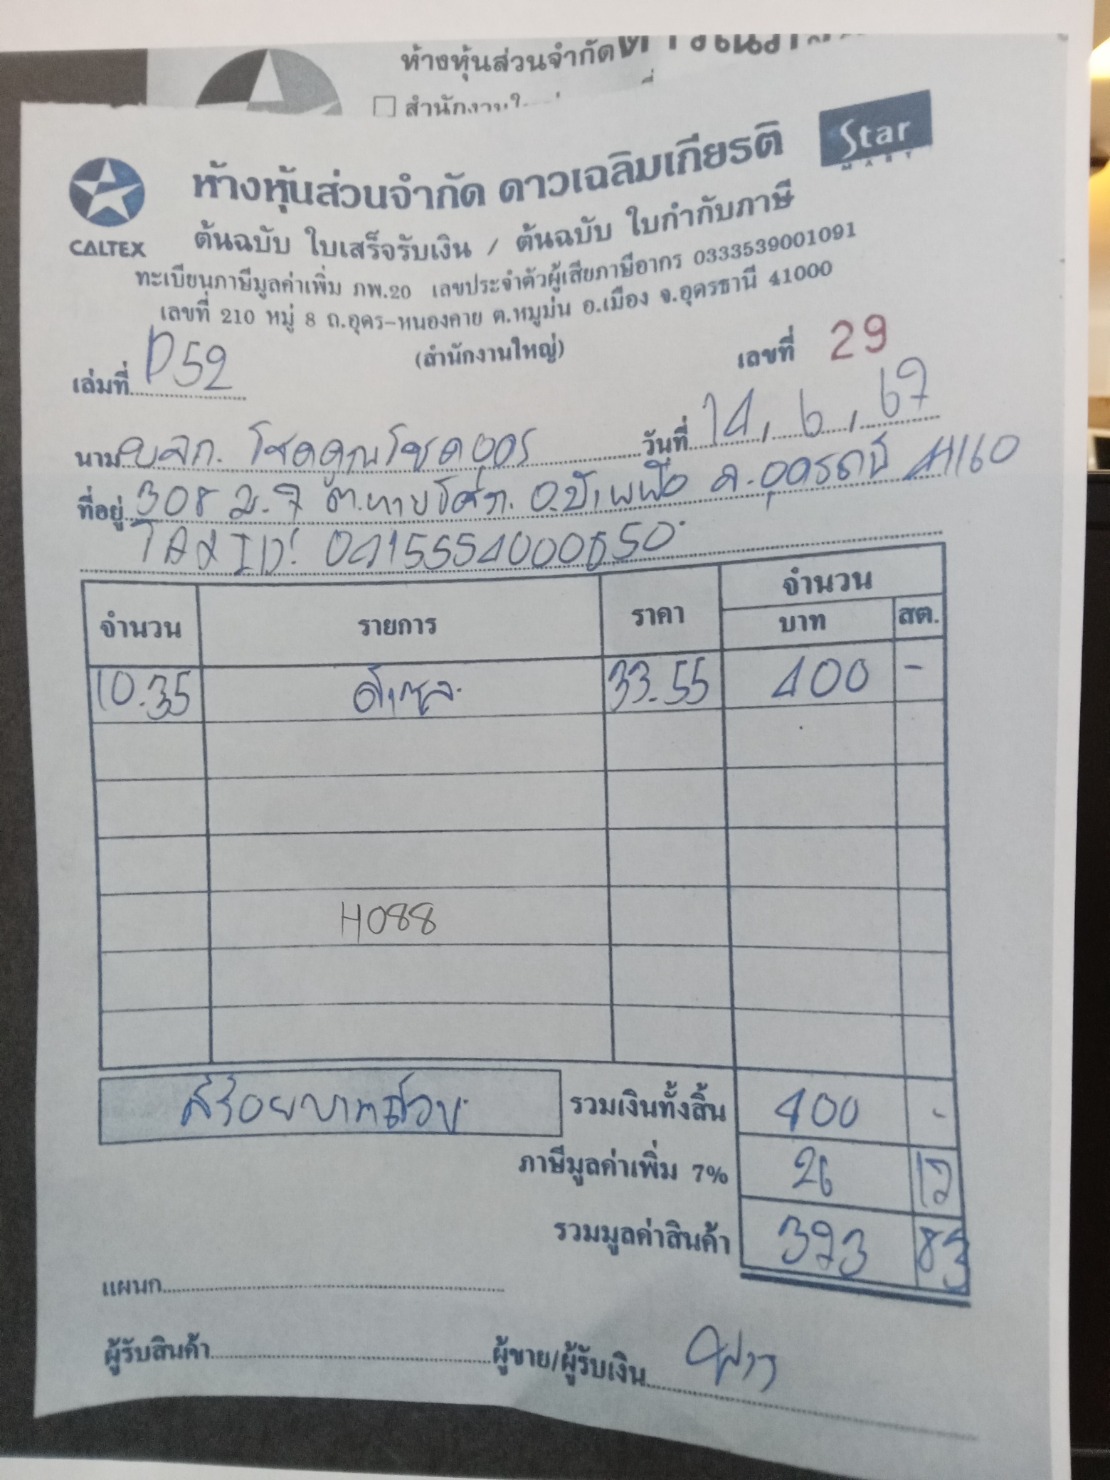 ห้างหุ้นส่วนจำกัด
สำนักงานใ
CALTEX
Star
MART
ห้างหุ้นส่วนจำกัด ดาวเฉลิมเกียรติ
ต้นฉบับ ใบเสร็จรับเงิน / ต้นฉบับ ใบกำกับภาษี
ทะเบียนภาษีมูลค่าเพิ่ม ภพ.20 เลขประจำตัวผู้เสียภาษีอากร 0333539001091
เลขที่ 210 หมู่ 8 ถ.อุดร-หนองคาย ต.หมูม่น อ.เมือง จ.อุดรธานี 41000
(สำนักงานใหญ่)
เล่มที่ D52 เลขที่ 29
นาม บจก. โชคคูณโชคอุดร วันที่ 14, 6, 67
ที่อยู่ 308 ม.7 อ.บ้านผือ จ.อุดรธานี 41160
TAX ID: 0415554000650
จำนวน รายการ ราคา จำนวน
บาท สต.
10.35 ดีเซล 33.55 400 -
H088
สี่ร้อยบาทถ้วน รวมเงินทั้งสิ้น 400 -
ภาษีมูลค่าเพิ่ม 7% 26 12
รวมมูลค่าสินค้า 373 83
แผนก
ผู้รับสินค้า ผู้ขาย/ผู้รับเงิน